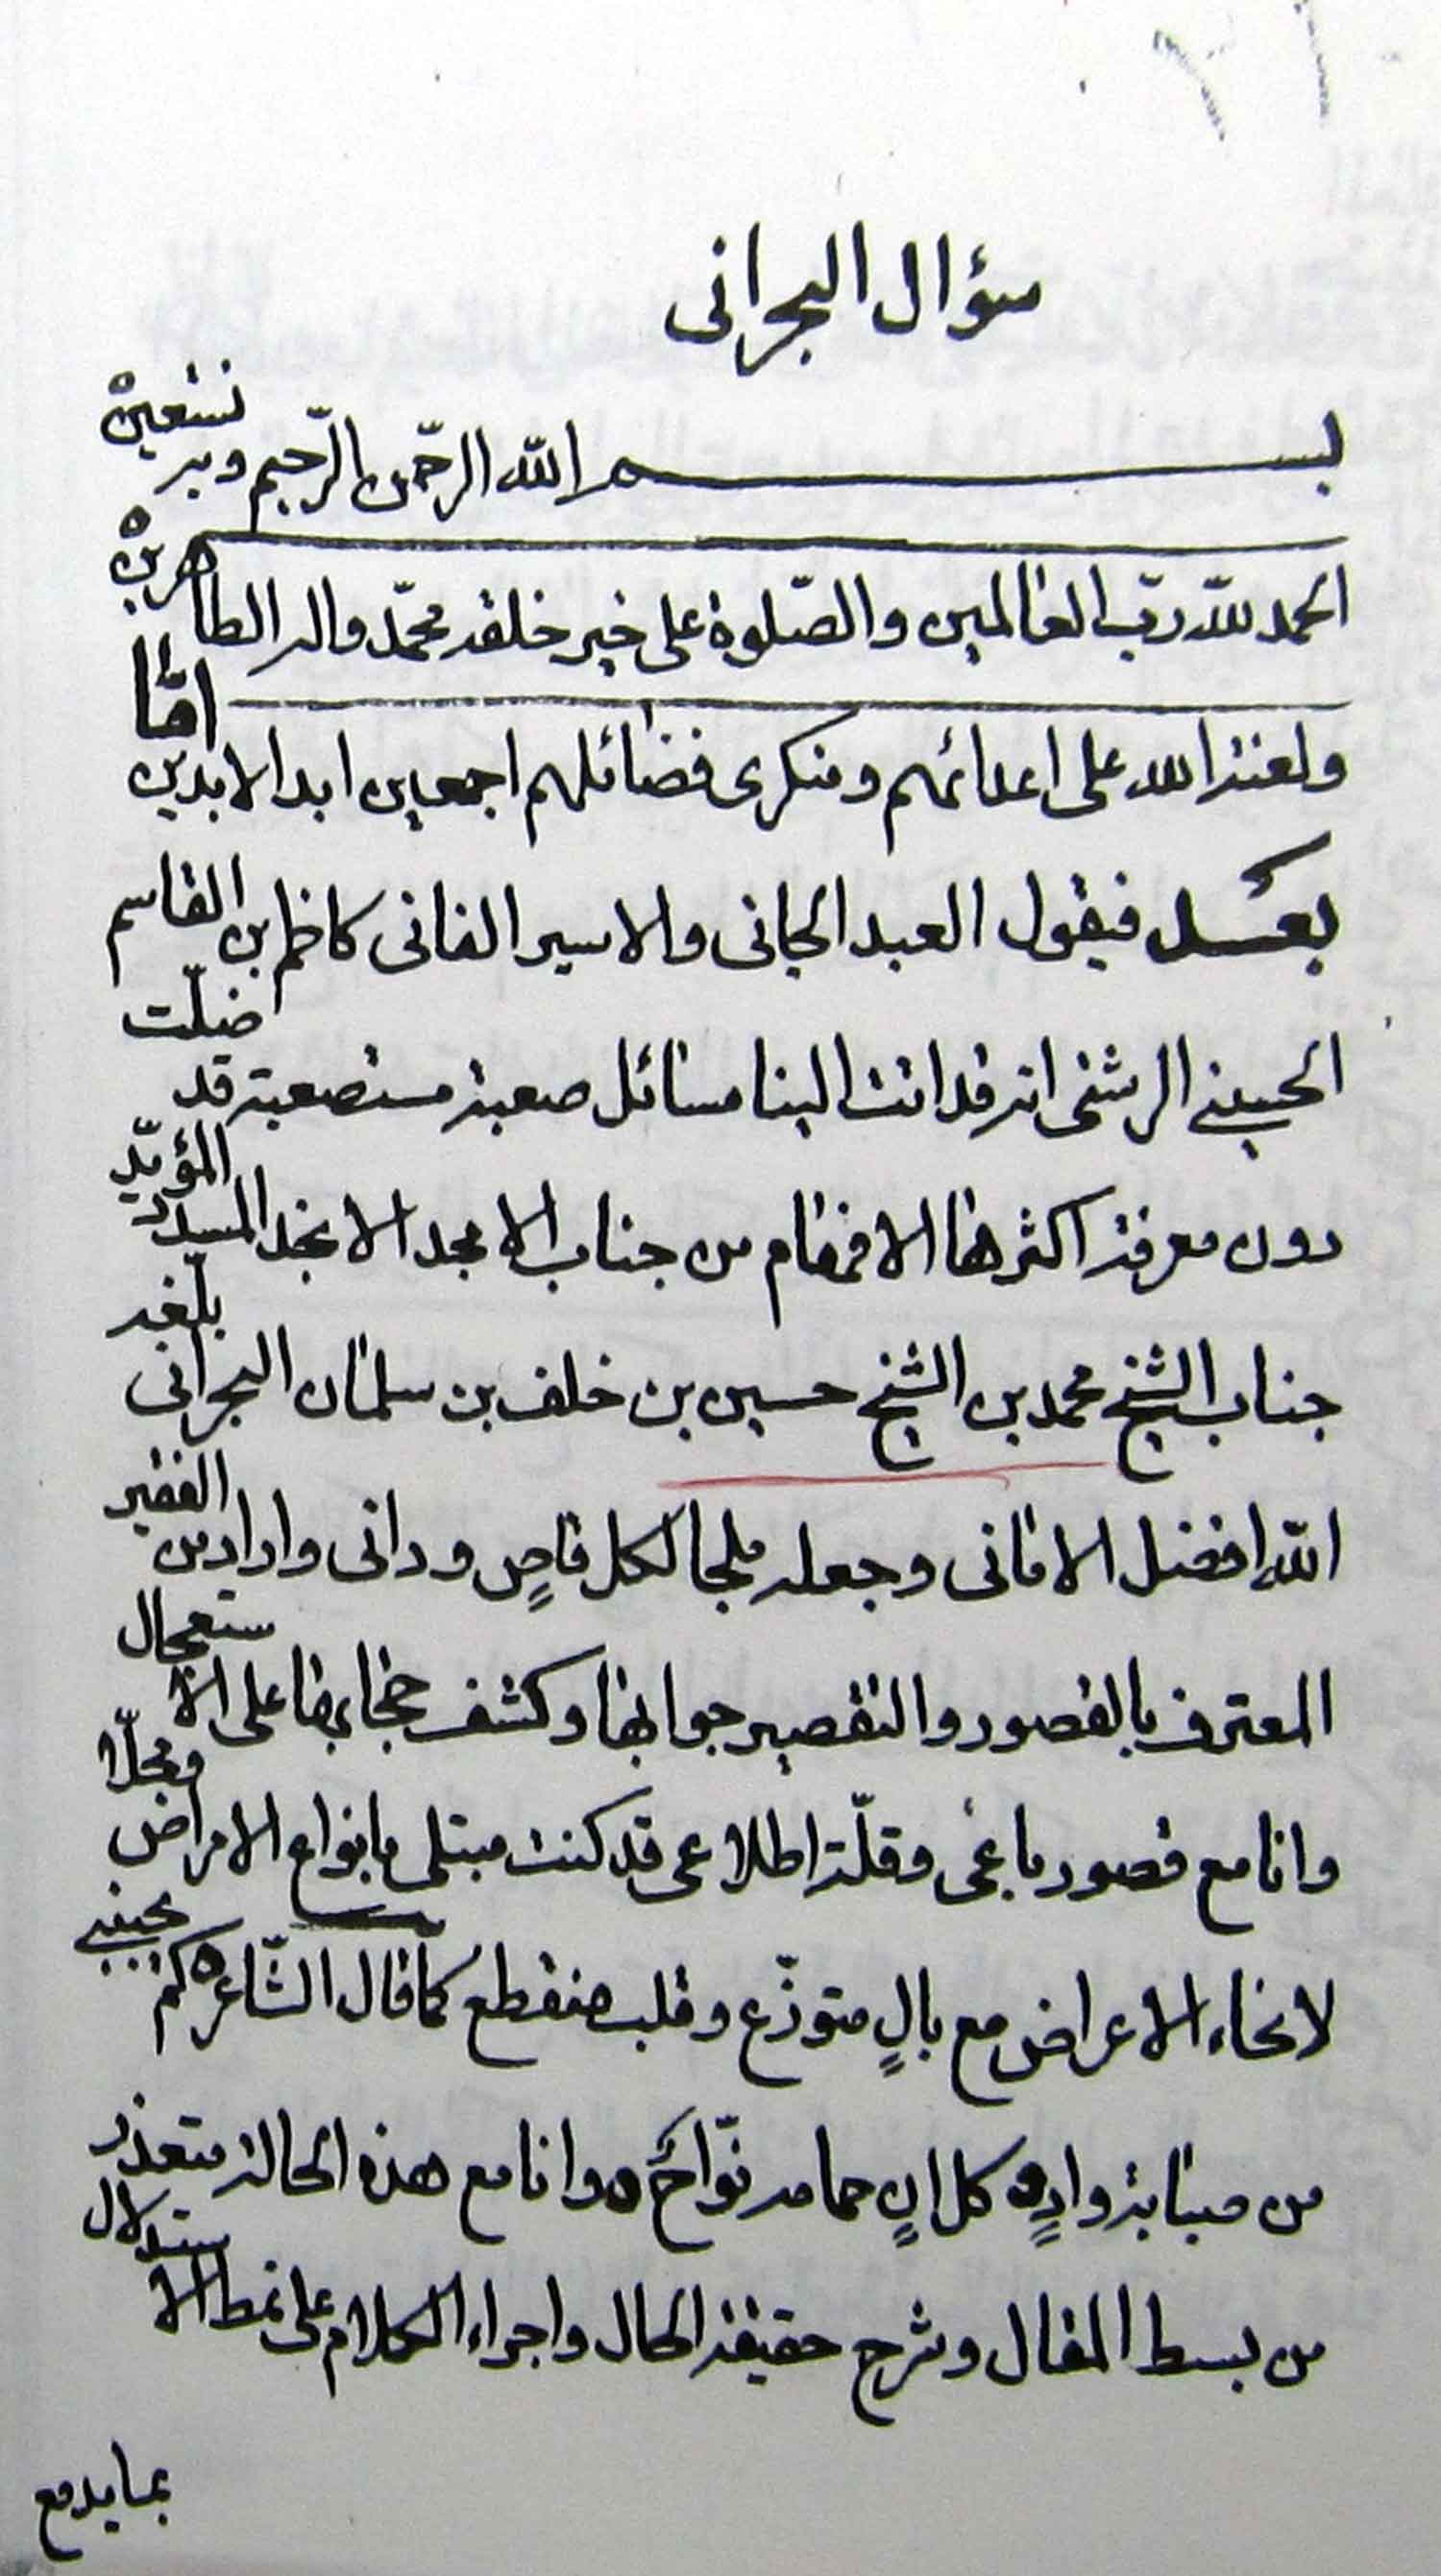 سؤال البحرانی
بسم الله الرّحمن الرّحیم وبه نستعین
الحمد للّه ربّ العالمین والصّلوة علی خیر خلقه محمّد واله الطاهرین
ولعنة الله علی اعدائهم ومنکری فضائلهم اجمعین ابد الابدین امّا
بعد فیقول العبد الجانی والاسیر الفانی کاظم بن القاسم
الحسینی الرشتی انه قد اتت الینا مسائل صعبة مستصعبة قد ضلّت
دون معرفة اکثرها الافهام من جناب الامجد الانجد المسدد المؤیّد
جناب الشیخ محمد بن الشیخ حسین بن خلف بن سلمان البحرانی بلّغه
اللّه افضل الامانی وجعله ملجا لکل قاصٍ ودانی واراد من الفقیر
المعترف بالقصور والتقصیر جوابها وکشف حجابها علی الاستعجال
وانا مع قصور باعی وقلّة اطلاعی قد کنت مبتلی بانواع الامراض ومحلّا
لانحاء الاعراض مع بالٍ متوزّع وقلب منقطع کما قال الشّاعر کم بجنبی
من صبابة وادٍ کل انٍ حمامه نوّاحٌ وانا مع هذه الحالة متعذر
من بسط المقال وشرح حقیقة الحال واجراء الکلام علی نمط الاستدلال
بما یدفع